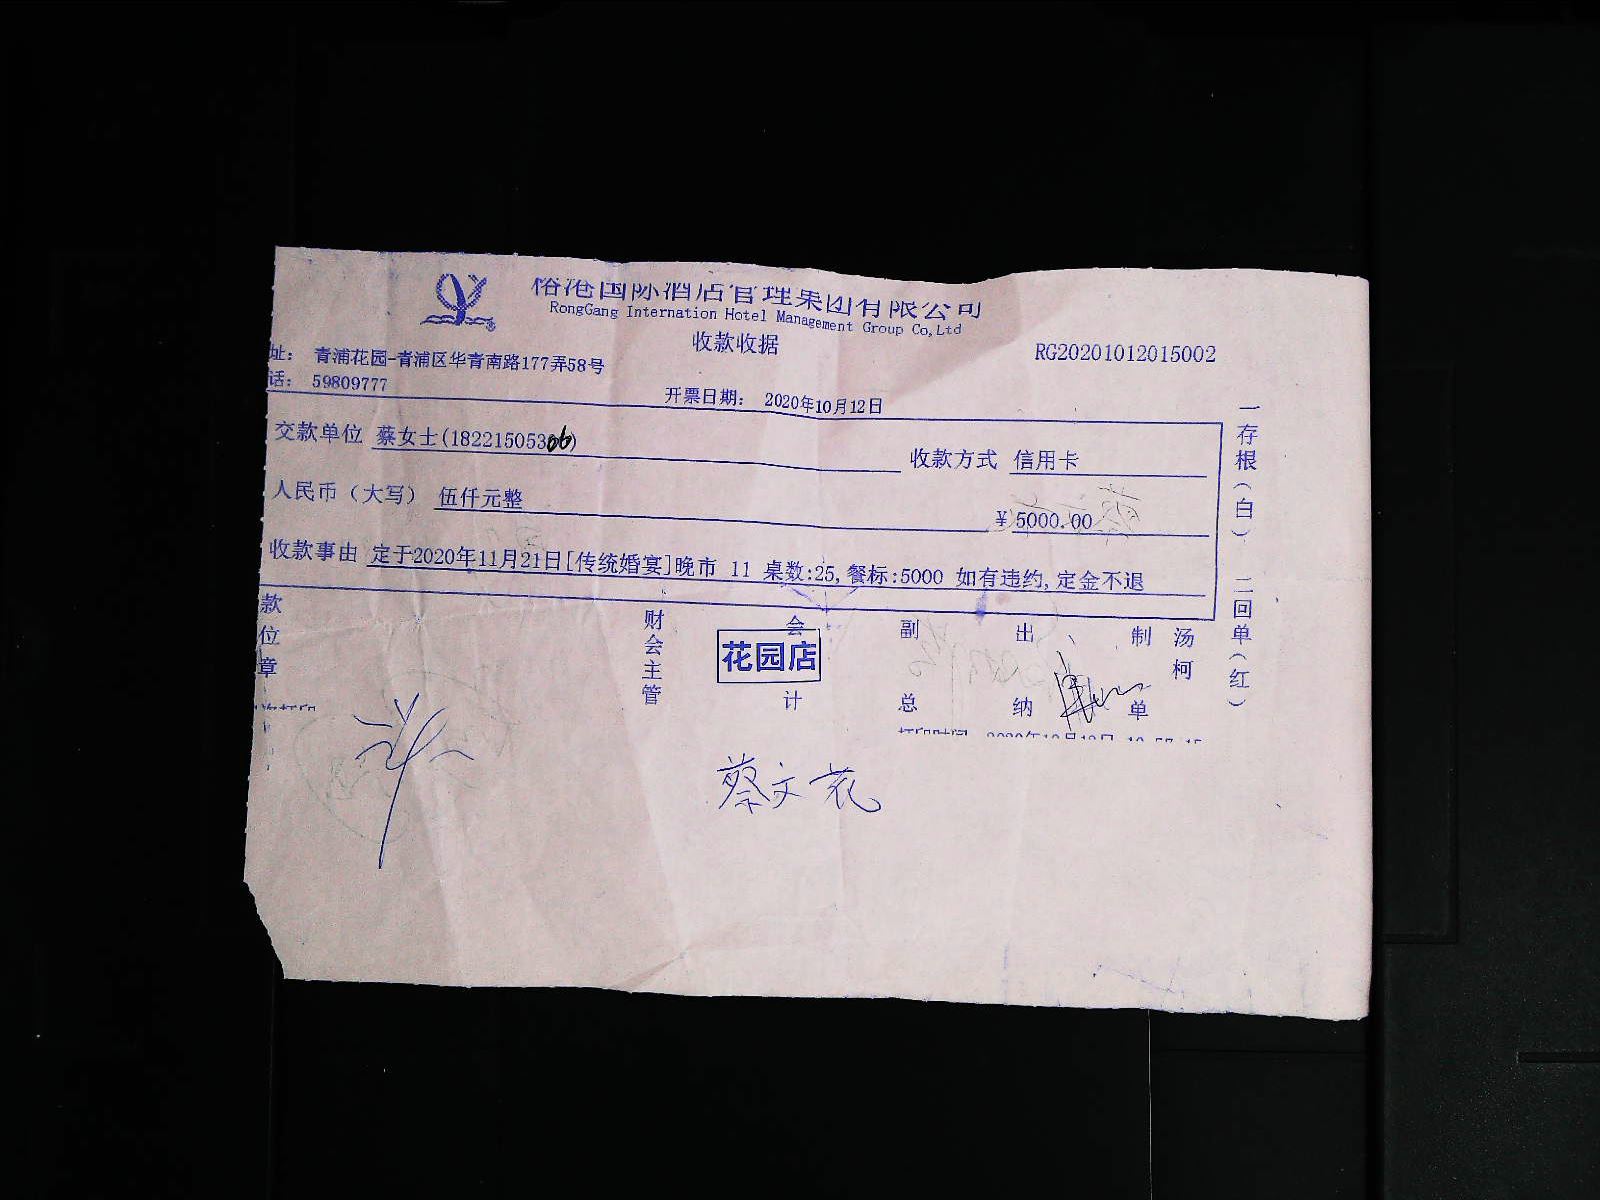 港国际酒店管理集团有限公司
RongGang Internation Hotel Management Group Co,Ltd
收款收据
RG20201012015002
址: 青浦花园-青浦区华青南路177弄58号
话: 59809777
开票日期: 2020年10月12日
交款单位 蔡女士(18221505306)
收款方式 信用卡
人民币(大写) 伍仟元整
¥ 5000.00
收款事由 定于2020年11月21日[传统婚宴]晚市 11 桌数:25,餐标:5000 如有违约,定金不退
款位章
财会主管
会计
花园店
副总
出纳
制单
汤柯
一存根(白) 二回单(红)
蔡文花